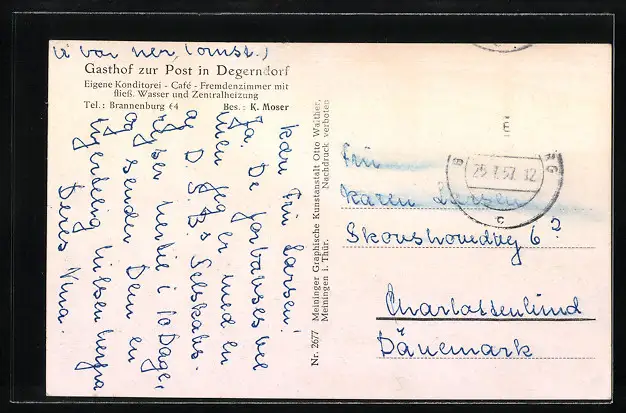 (x var her, (omst.)
Gasthof zur Post in Degerndorf
Eigene Konditorei - Café - Fremdenzimmer mit
fließ. Wasser und Zentralheizung
Tel.: Brannenburg 64 Bes.: K. Moser
Kære Fru Larsen!
Ja, De forbauses vel
men jeg er med en
af D. S. B's Selskabs-
rejser hertil i 10 Dage,
og sender Dem en
hjertelig hilsen herfra
Deres Nina.
Nr. 2677 Meininger Graphische Kunstanstalt Otto Walther,
Meiningen i. Thür. Nachdruck verboten
25.7.57.12
C
Fru
Karen Larsen
Skovshovedvej 6?
Charlottenlund
Dänemark